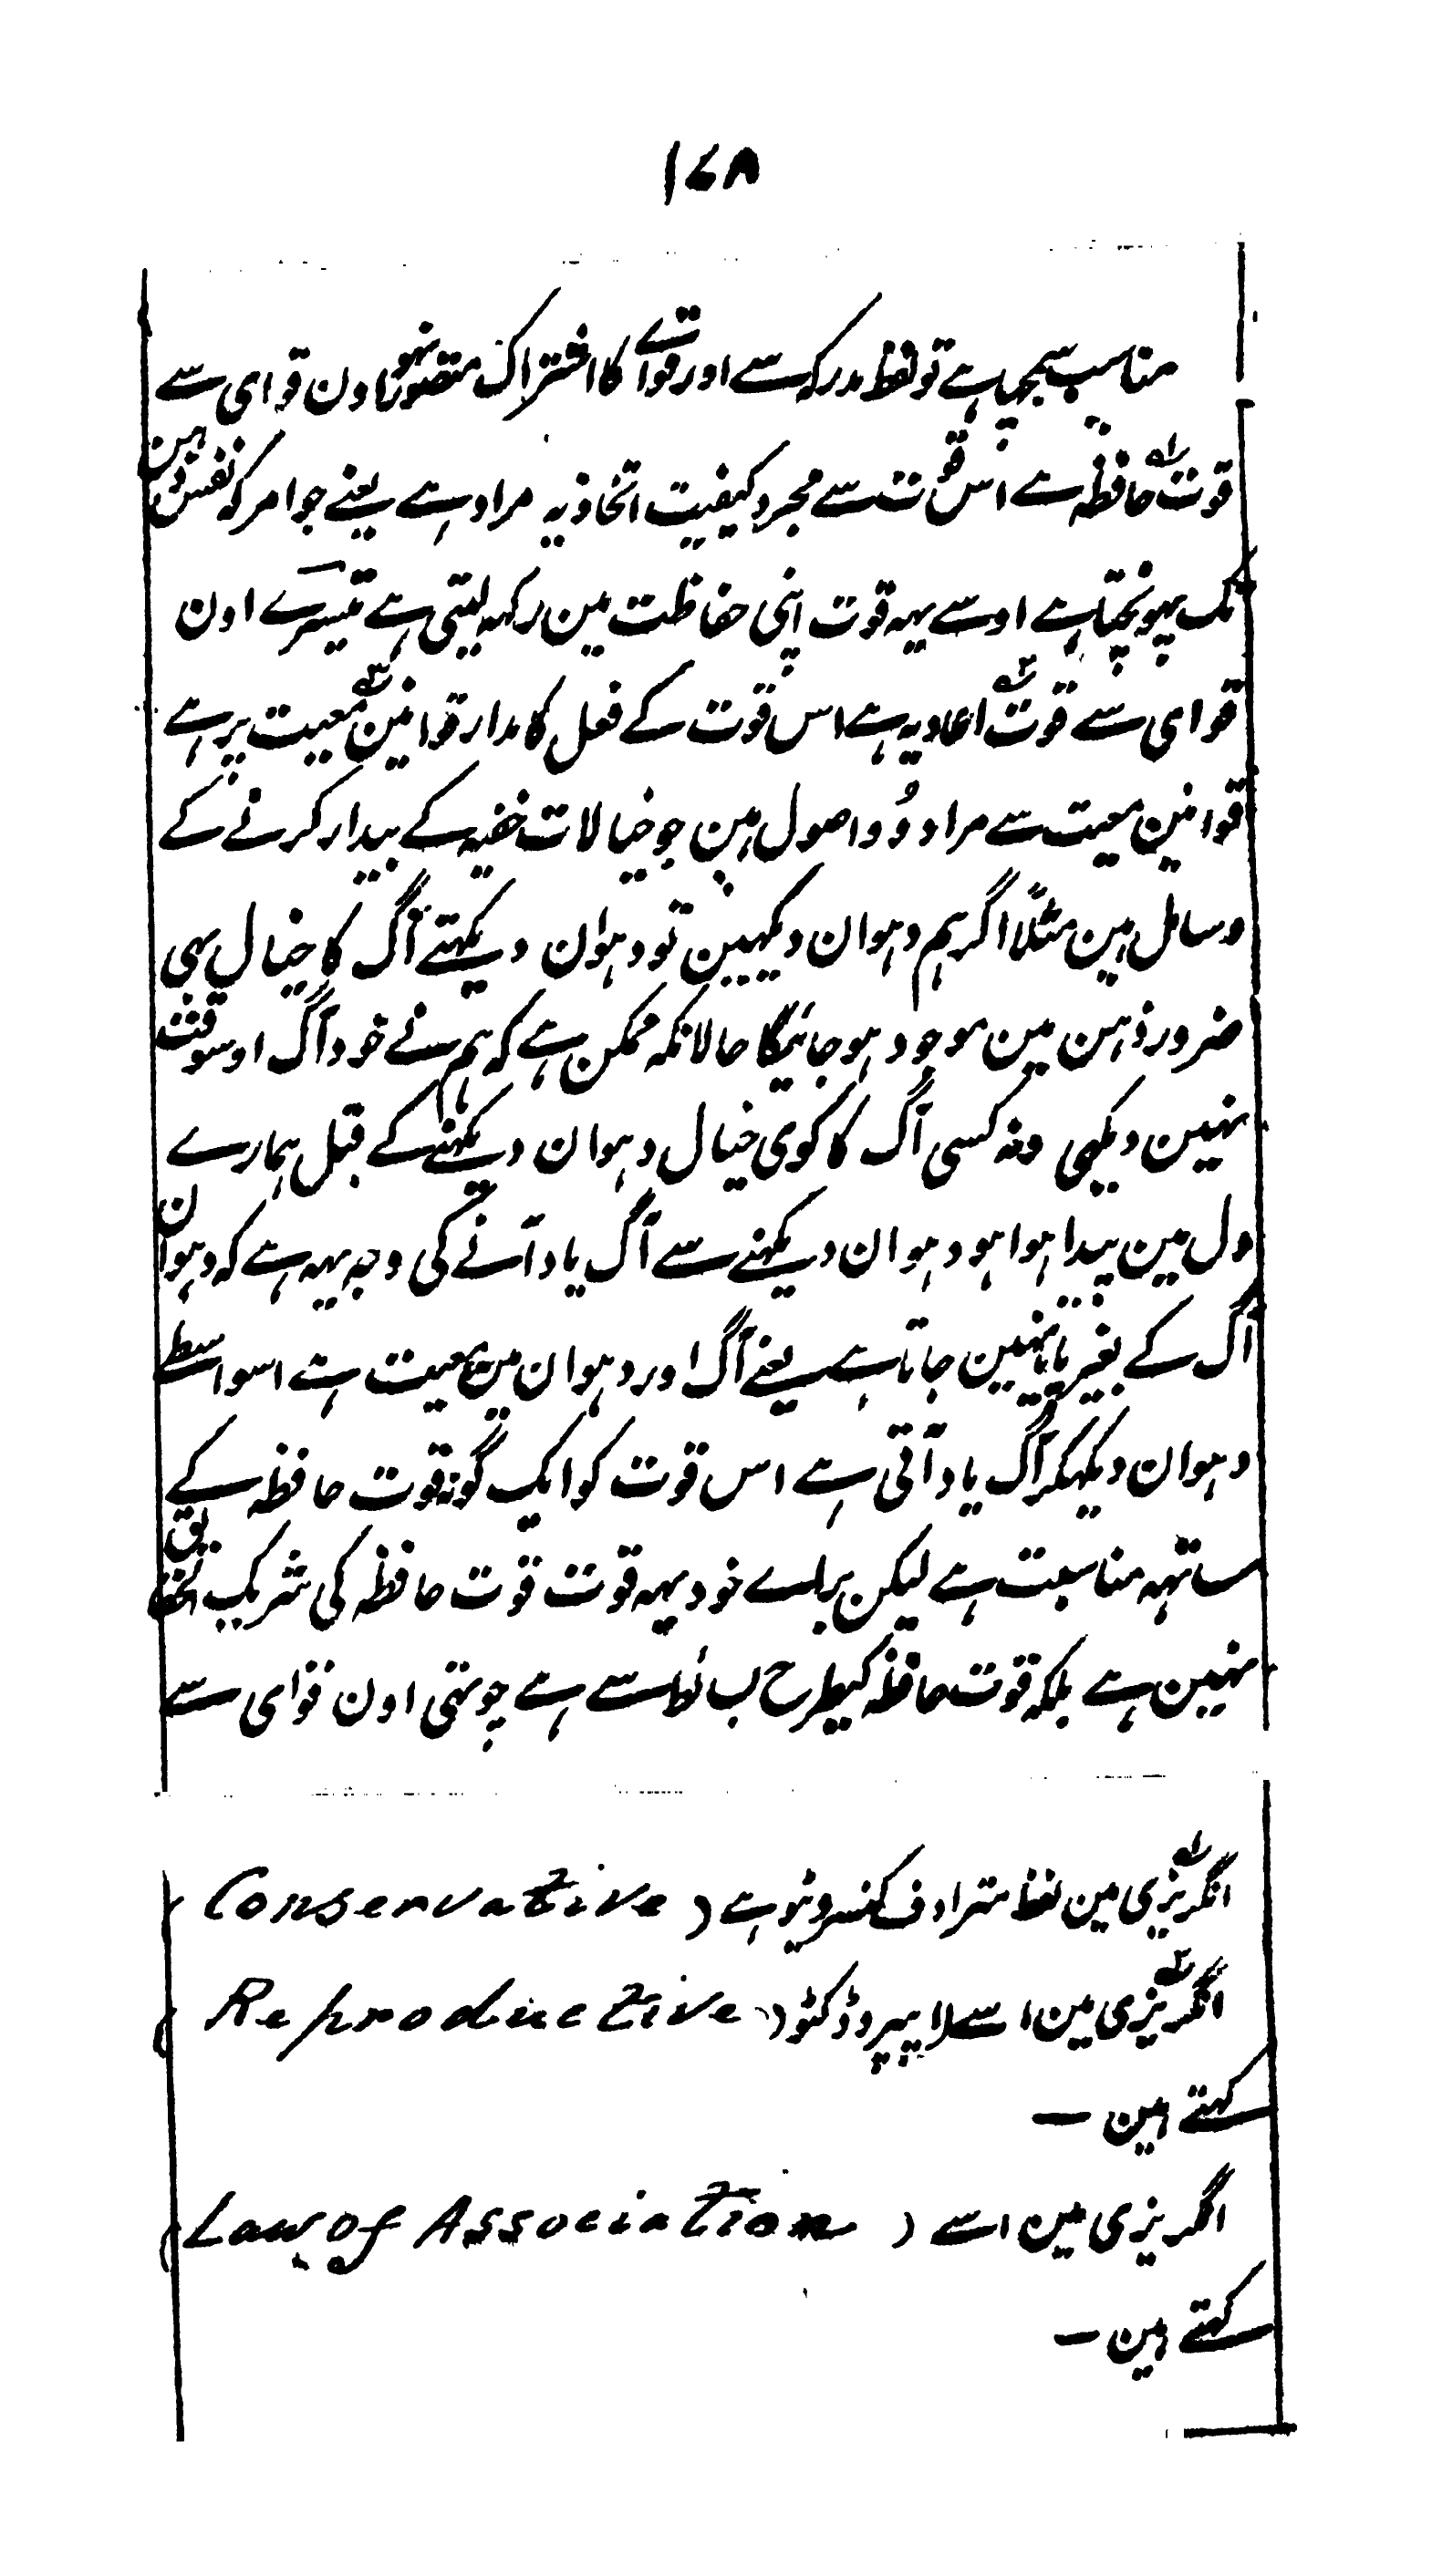 ۱۷۸
مناسب سمجہا ہے تو لفظ مدرکہ سے اور قواتے کا اشتراک متصور نہو نا دن قوای سے
قوت حافظہ ہے اس قوت سے مجرد کیفیت اتخاذیہ مراد ہے یعنے جو امر کہ نفس ذہن
تک پہونچتا ہے اوسے یہہ قوت اپنی حفاظت مین رکہہ لیتی ہے تیسرے اون
قوای سے قوت اعادیہ ہے اس قوت کے فعل کا مدار قوانین معیت پر ہے
قوانین معیت سے مراد وُہ اصول ہین جو خیالات خفیہ کے بیدار کرنے کے
وسائل ہین مثلاً اگر ہم دہوان دیکہین تو دہوان دیکہتے آگ کا خیال بہی
ضرور ذہن مین موجود ہو جائیگا حالانکہ ممکن ہے کہ ہم نے خود آگ اوسوقت
نہین دیکہی ونہ کسی آگ کا کوی خیال دہوان دیکہنے کے قبل ہمارے
دل مین پیدا ہوا ہو دہوان دیکہنے سے آگ یاد آنے کی وجہ یہہ ہے کہ دہوان
آگ کے بغیر پایا نہین جاتا ہے یعنے آگ اور دہوان مین معیت ہے اسواسطے
دہوان دیکہکر آگ یاد آتی ہے اس قوت کو ایک گونہ قوت حافظہ کے
ساتہہ مناسبت ہے لیکن براے خود یہہ قوت قوت حافظہ کی شریک
نہین ہے بلکہ قوت حافظہ کیطرح ب لطا سے ہے چوتہی اون قوای سے
انگریزی مین لفظ مترادف کنسرویٹو ہے ( Conservative )
انگریزی مین اسے ریپروڈکٹو ( Reproductive )
کہتے ہین —
انگریزی مین اسے ( Law of Association )
کہتے ہین —